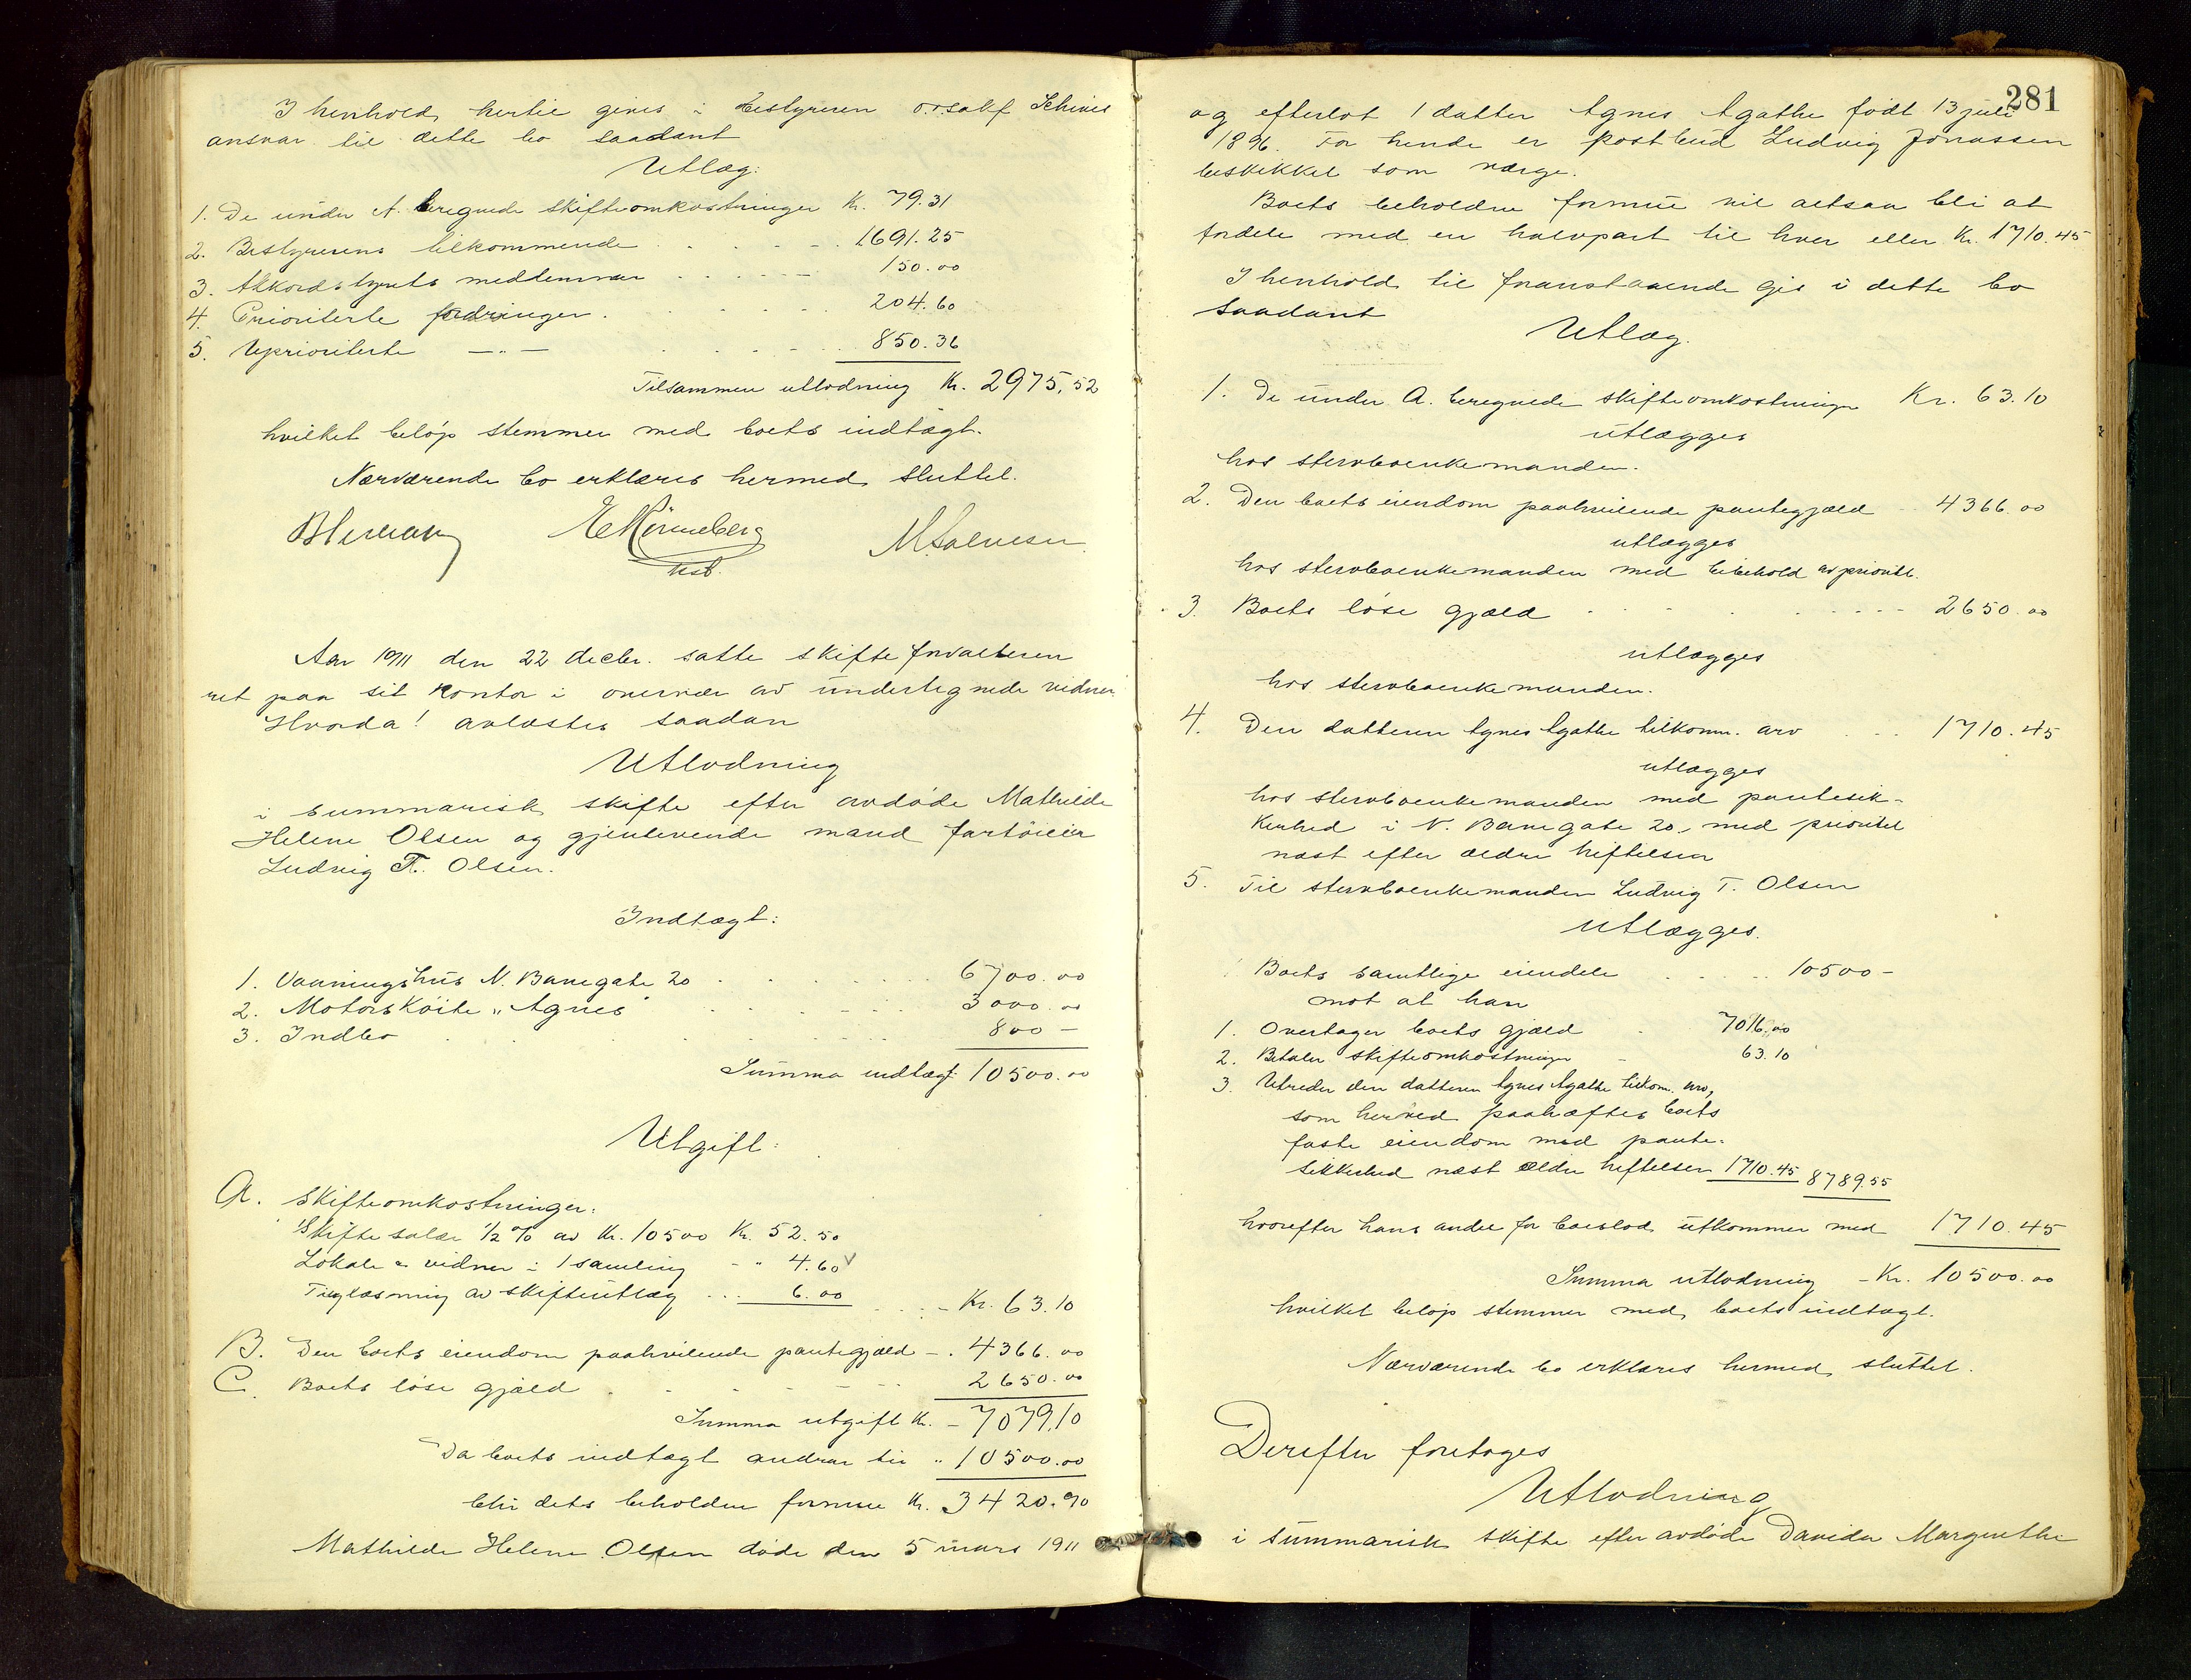 I henhold hertil gives i Bestyreren o.r.sakf. Schives
ansvar til dette bo saadant
Utlæg:
1. De under A. beregnede skifteomkostninger Kr. 79.31
2. Bestyrerens tilkommende . . . . . 1691.25
3. Akkordstyrets medlemmer . . . . . 150.00
4. Prioriterte fordringer . . . . . 204.60
5. Uprioriterte —"— . . . . . 850.36
Tilsammen utlodning Kr. 2975,52
hvilket beløp stemmer med boets indtægt.
Nærværende bo erklæres hermed sluttet.
M. Salvesen
Aar 1911 den 22 decbr. satte skifteforvalteren
ret paa sit kontor i overvær av undertegnede vidner
Hvorda! avlæstes saadan
Utlodning
i summarisk skifte efter avdøde Mathilde
Helene Olsen og gjenlevende mand fartøieier
Ludvig T. Olsen.
Indtægt:
1. Vaaningshus N. Banegate 20 . . . . . 6700.00
2. Motorskøite "Agnes" . . . . . 3000.00
3. Indbo . . . . . 800 —
Summa indtægt 10500.00
Utgift:
A. Skifteomkostninger:
Skiftesalær ½ % av Kr. 10500 Kr. 52.50
Lokale & vidner i 1 samling - " 4.60
Tinglæsning av skifteutlæg ... 6.00 . . . - Kr. 63.10
B. Den boets eiendom paahvilende pantegjæld - . 4366.00
C. Boets løse gjæld . . . . . 2650.00
Summa utgift Kr. - 7079.10
Da boets indtægt andrar til " 10500.00
blir dets beholdne formue Kr. 3420.90
Mathilde Helene Olsen døde den 5 mars 1911
281
og efterlot 1 datter Agnes Agathe født 13 juli
1896. For hende er postbud Ludvig Jonassen
beskikket som værge.
Boets beholdne formue vil altsaa bli at
fordele med en halvpart til hver eller Kr. 1710.45
I henhold til foranstaaende gis i dette bo
saadant
Utlæg.
1. De under A. beregnede skifteomkostninger Kr. 63.10
utlægges
hos stervboenkemanden.
2. Den boets eiendom paahvilende pantegjæld - 4366.00
utlægges
hos stervboenkemanden med bibehold av priorit.
3. Boets løse gjæld . . . . . 2650.00
utlægges
hos stervboenkemanden.
4. Den datteren Agnes Agathe tilkomm. arv . . . 1710.45
utlægges
hos stervboenkemanden med pantesik-
kerhed i N. Banegate 20, med prioritet
næst efter ældre heftelser
5. Til stervboenkemanden Ludvig T. Olsen
utlægges.
Boets samtlige eiendele . . . . 10500 -
mot at han
1. Overtager boets gjæld - 7016.00
2. Betaler skifteomkostninger - 63.10
3. Utreder den datteren Agnes Agathe tilkom. arv,
som herved paahæftes boets
faste eiendom med pante-
sikkerhed næst ældre heftelser 1710.45 8789.55
hvorefter hans andel for boeslod utkommer med 1710.45
Summa utlodning - Kr. 10500.00
hvilket beløp stemmer med boets indtægt.
Nærværende bo erklæres hermed sluttet.
Derefter foretoges
Utlodning
i summarisk skifte efter avdøde Davida Margrethe